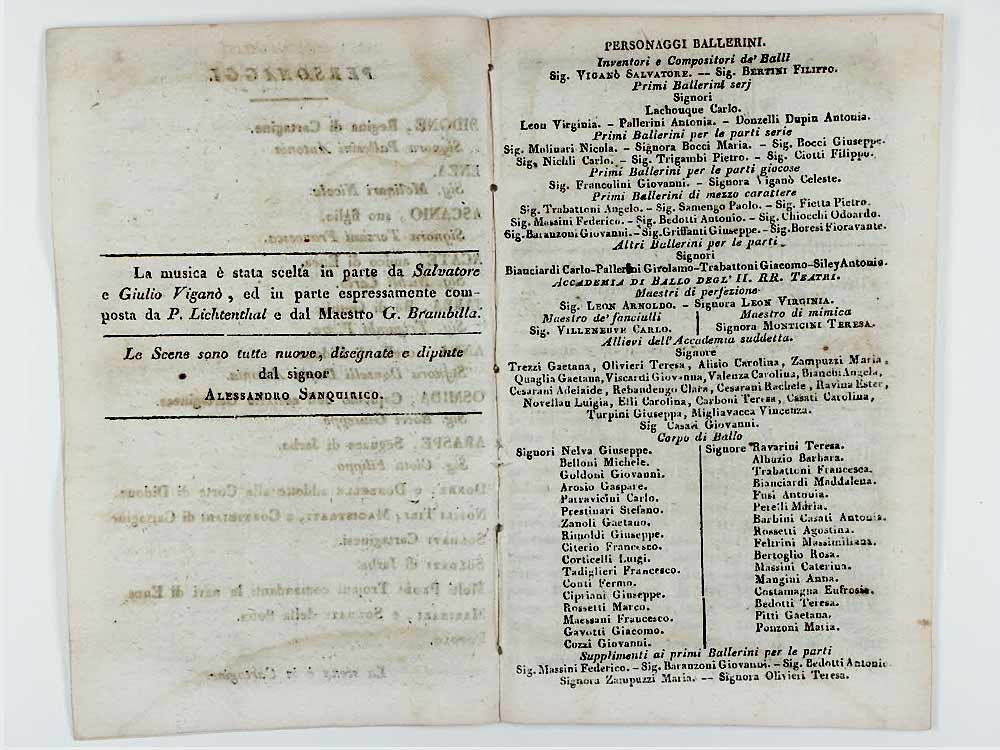 La musica è stata scelta in parte da Salvatore
e Giulio Viganò, ed in parte espressamente com-
posta da P. Lichtenthal e dal Maestro G. Brambilla.
Le Scene sono tutte nuove, disegnate e dipinte
dal signor
ALESSANDRO SANQUIRICO.
PERSONAGGI BALLERINI.
Inventori e Compositori de' Balli
Sig. VIGANÒ SALVATORE. — Sig. BERTINI FILIPPO.
Primi Ballerini serj
Signori
Lachouque Carlo.
Leon Virginia. - Pallerini Antonia. - Donzelli Dupin Antonia.
Primi Ballerini per le parti serie
Sig. Molinari Nicola. - Signora Bocci Maria. - Sig. Bocci Giuseppe.
Sig. Nichli Carlo. - Sig. Trigambi Pietro. - Sig. Ciotti Filippo.
Primi Ballerini per le parti giocose
Sig. Francolini Giovanni. - Signora Viganò Celeste.
Primi Ballerini di mezzo carattere
Sig. Trabattoni Angelo. - Sig. Samengo Paolo. - Sig. Fietta Pietro.
Sig. Massini Federico. - Sig. Bedotti Antonio. - Sig. Chiocchi Odoardo.
Sig. Baranzoni Giovanni. - Sig. Griffanti Giuseppe. - Sig. Boresi Fioravante.
Altri Ballerini per le parti
Signori
Bianciardi Carlo-Pallerini Girolamo-Trabattoni Giacomo-Siley Antonio.
ACCADEMIA DI BALLO DEGL' II. RR. TEATRI.
Maestri di perfezione
Sig. LEON ARNOLDO. - Signora LEON VIRGINIA.
Maestro de' fanciulli
Sig. VILLENEUVE CARLO.
Maestro di mimica
Signora MONTICINI TERESA.
Allievi dell'Accademia suddetta.
Signore
Trezzi Gaetana, Olivieri Teresa, Alisio Carolina, Zampuzzi Maria,
Quaglia Gaetana, Viscardi Giovanna, Valenza Carolina, Bianchi Angela,
Cesarani Adelaide, Rebaudengo Clara, Cesarani Rachele, Ravina Ester,
Novellau Luigia, Elli Carolina, Carboni Teresa, Casati Carolina,
Turpini Giuseppa, Migliavacca Vincenza.
Sig Casati Giovanni.
Corpo di Ballo
Signori Nelva Giuseppe.
Belloni Michele.
Goldoni Giovanni.
Arosio Gaspare.
Parravicini Carlo.
Prestinari Stefano.
Zanoli Gaetano.
Rimoldi Giuseppe.
Citerio Francesco.
Corticelli Luigi.
Tadiglieri Francesco.
Conti Fermo.
Cipriani Giuseppe.
Rossetti Marco.
Maessani Francesco.
Gavotti Giacomo.
Cozzi Giovanni.
Signore Ravarini Teresa.
Albuzio Barbara.
Trabattoni Francesca.
Bianciardi Maddalena.
Fusi Antonia.
Perelli Maria.
Barbini Casati Antonia.
Rossetti Agostina.
Feltrini Massimiliana.
Bertoglio Rosa.
Massini Caterina.
Mangini Anna.
Costamagna Eufrosia.
Bedotti Teresa.
Pitti Gaetana.
Ponzoni Maria.
Supplimenti ai primi Ballerini per le parti
Sig. Massini Federico. - Sig. Baranzoni Giovanni. - Sig. Bedotti Antonio
Signora Zampuzzi Maria. — Signora Olivieri Teresa.